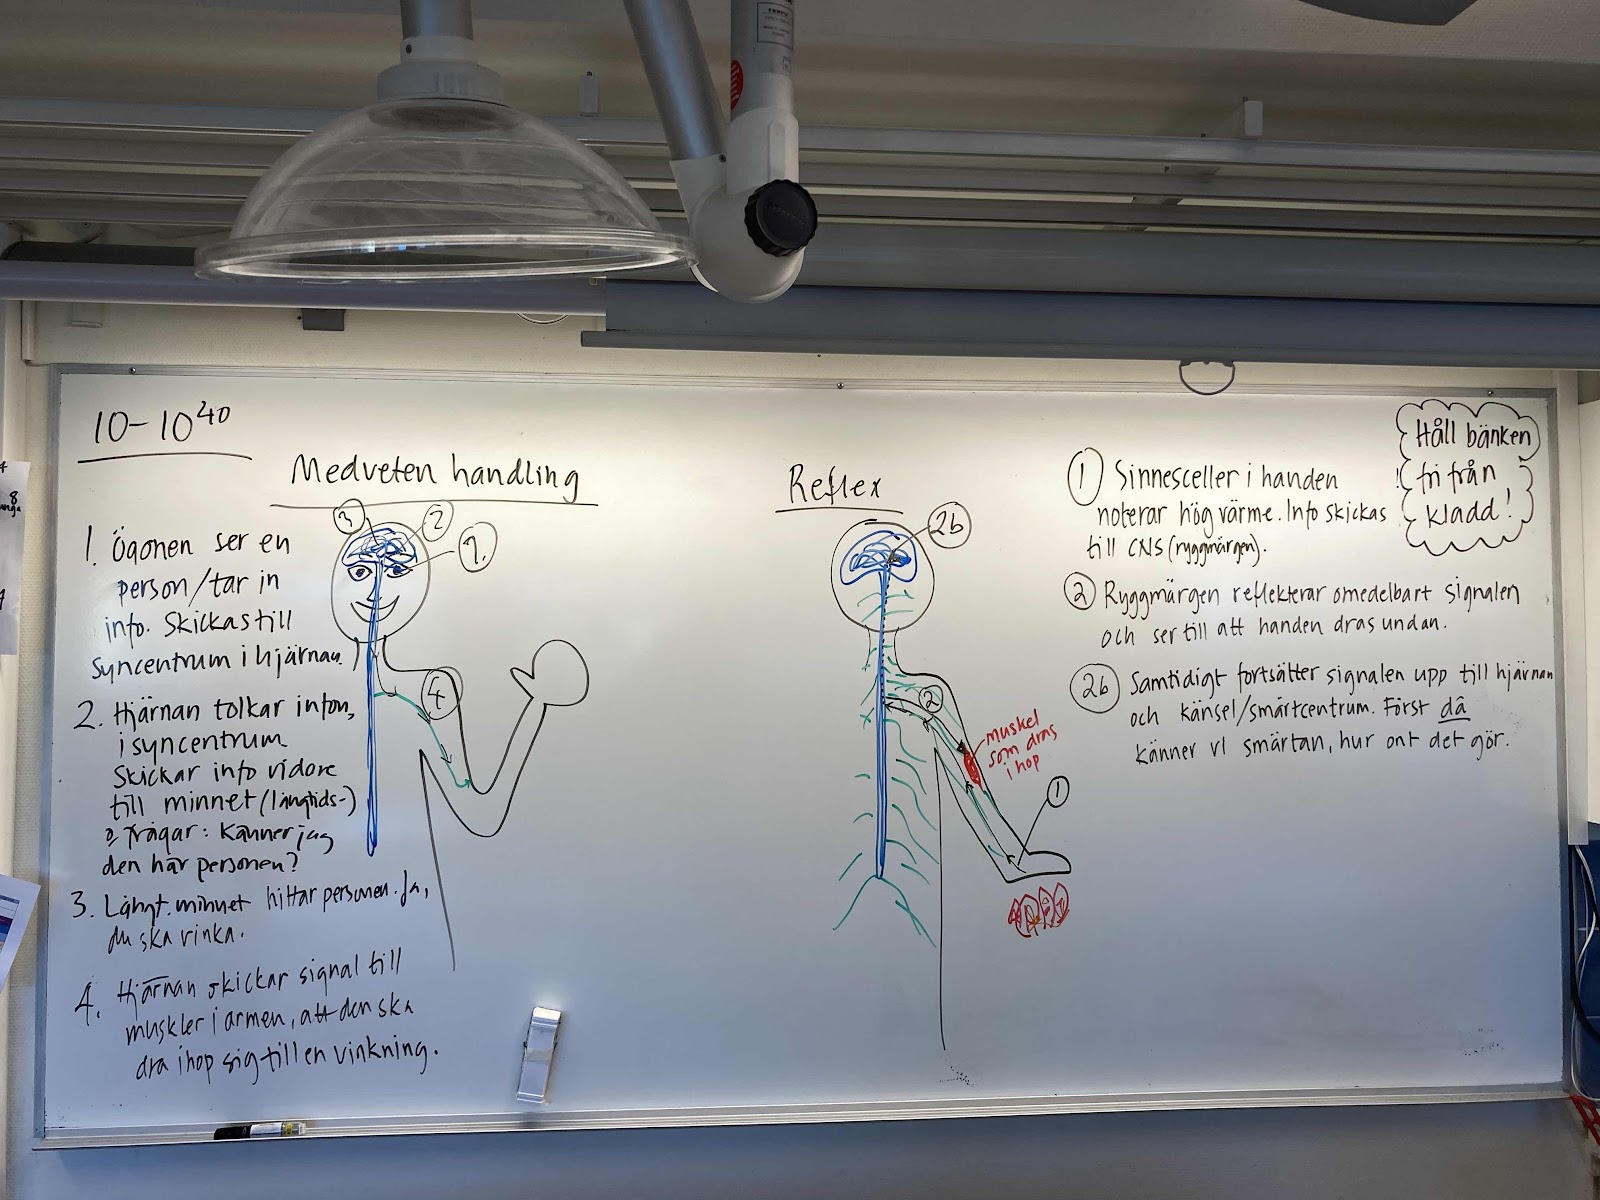 10-10⁴⁰
Medveten handling
1. Ögonen ser en
person/tar in
info. Skickas till
syncentrum i hjärnan.
2. Hjärnan tolkar infon,
i syncentrum
Skickar info vidare
till minnet (långtids-)
& frågar: Känner jag
den här personen?
3. Långt.minnet hittar personen. Ja,
du ska vinka.
4. Hjärnan skickar signal till
muskler i armen, att den ska
dra ihop sig till en vinkning.
3
2
1.
4
Reflex
2b
2
muskel
som dras
ihop
1
1 Sinnesceller i handen
noterar hög värme. Info skickas
till CNS (ryggmärgen).
2 Ryggmärgen reflekterar omedelbart signalen
och ser till att handen dras undan.
2b Samtidigt fortsätter signalen upp till hjärnan
och känsel/smärtcentrum. Först då
känner vi smärtan, hur ont det gör.
Håll bänken
fri från
kladd!
8